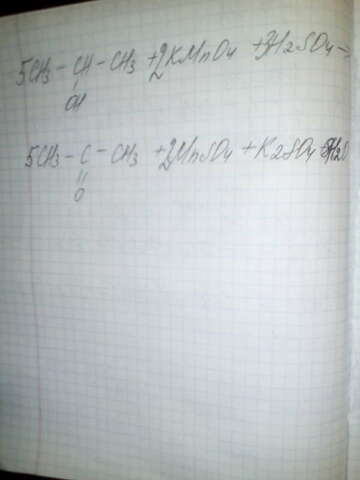 5CH3 - CH - CH3 + 2KMnO4 + 3H2SO4 →
OH
5CH3 - C - CH3 + 2MnSO4 + K2SO4 + 8H2O
=
O